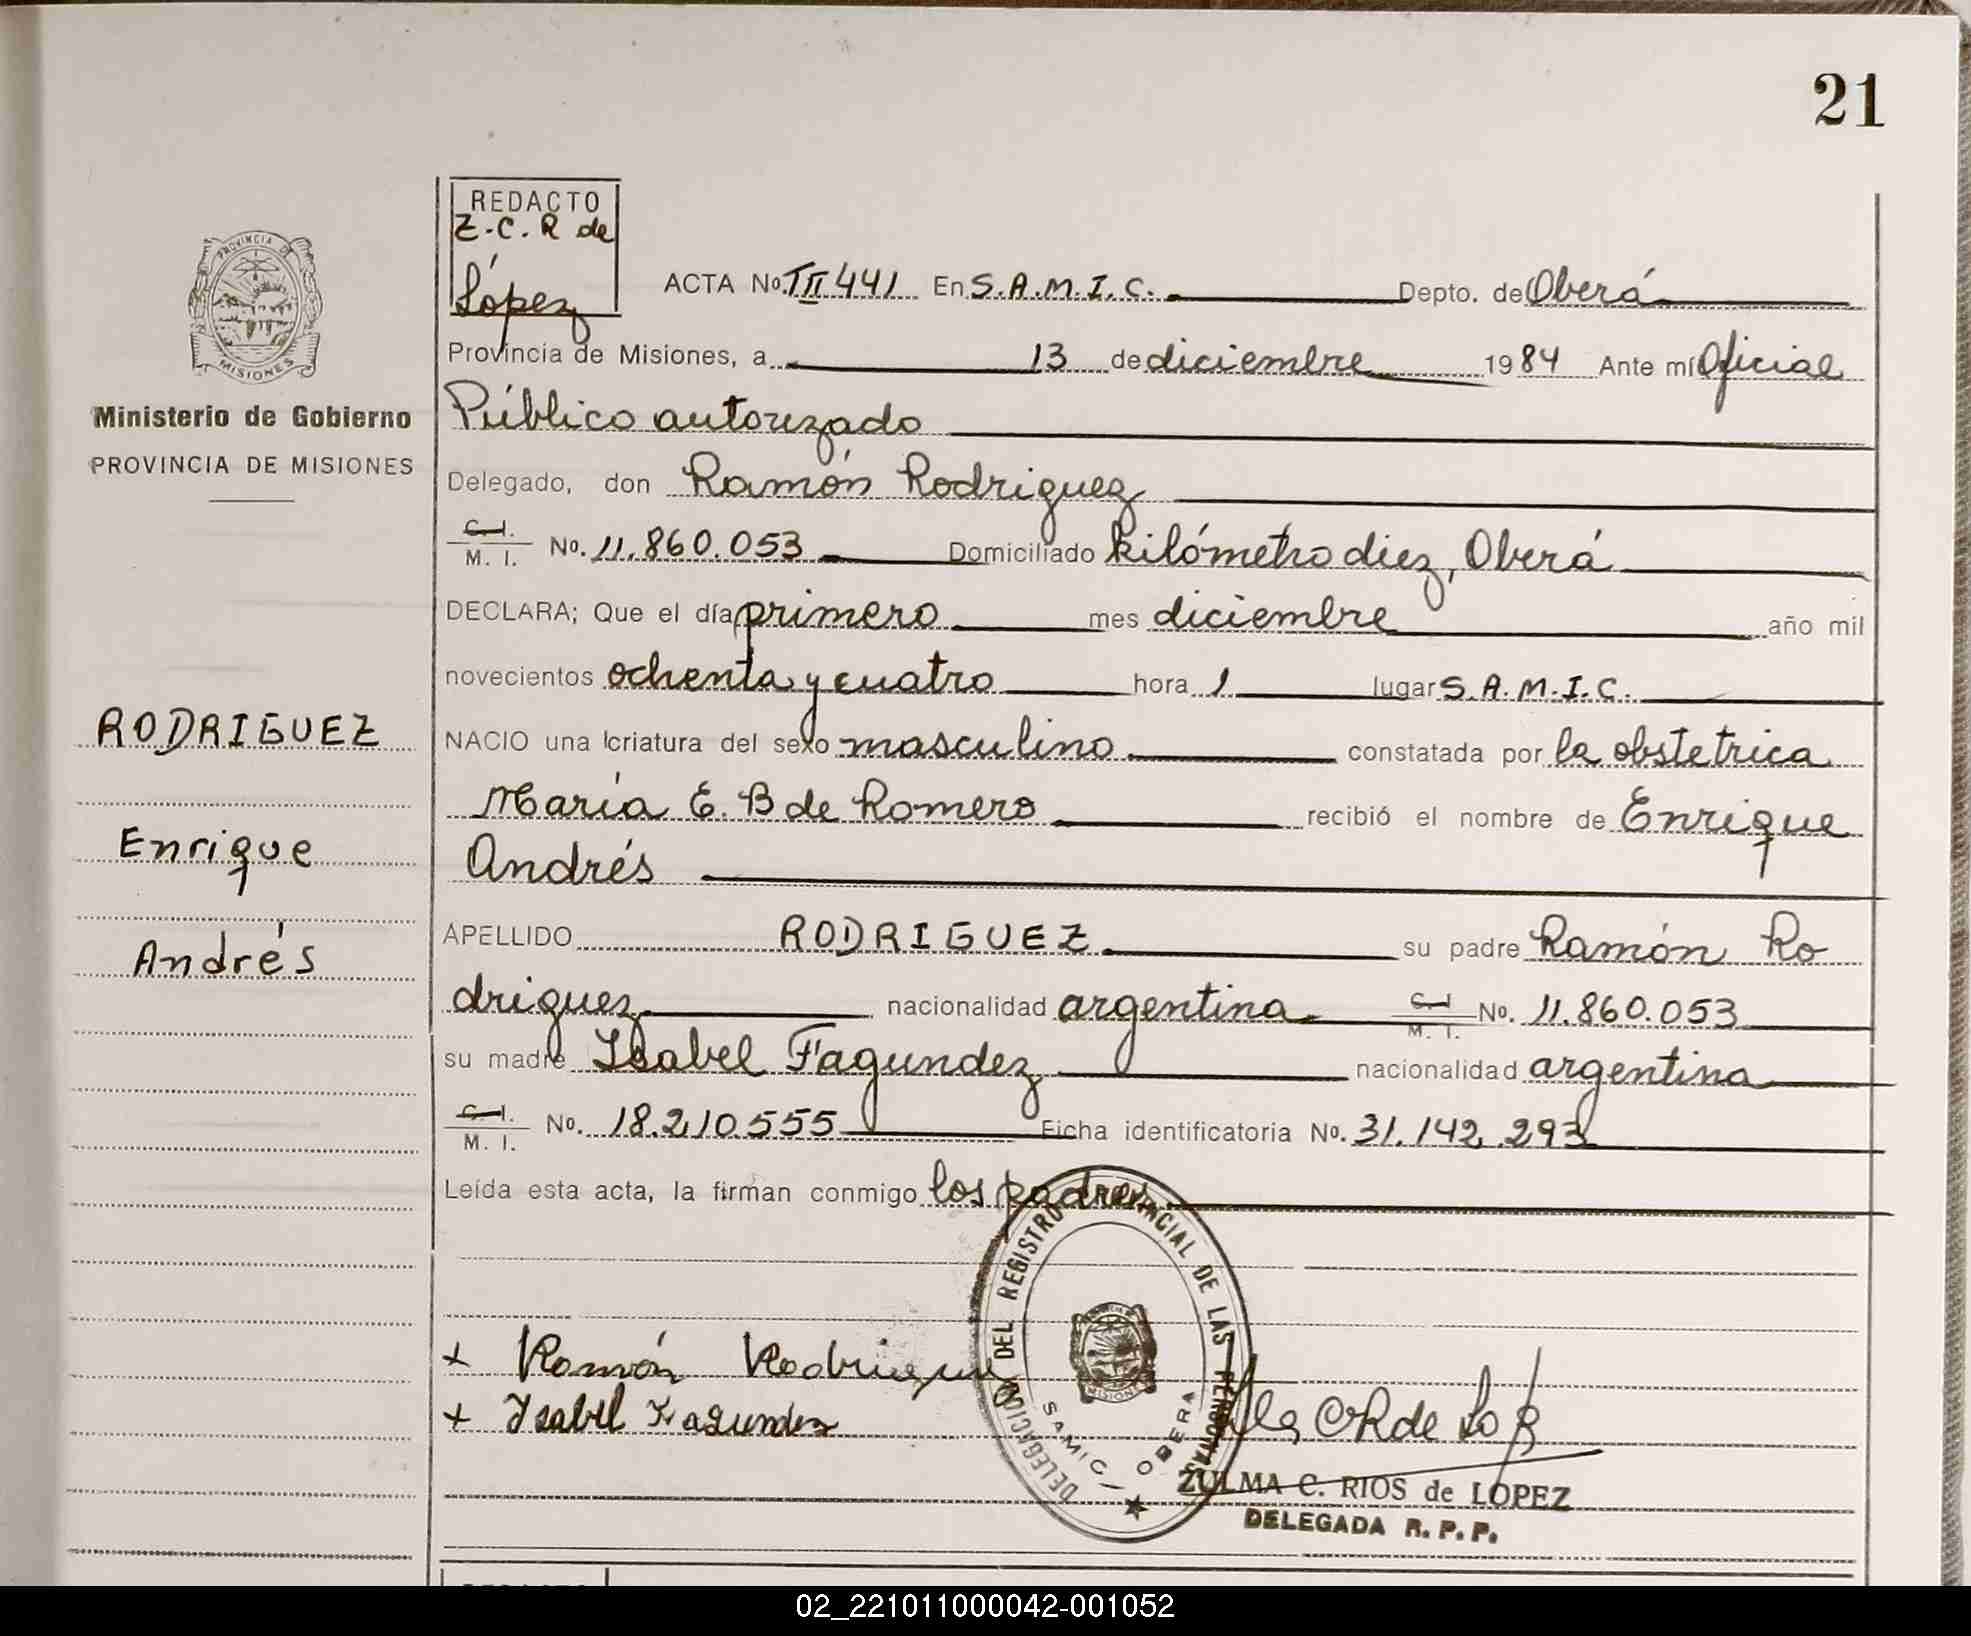 21
REDACTO
Z.C.R de
López
PROVINCIA DE
MISIONES
Ministerio de Gobierno
PROVINCIA DE MISIONES
ACTA No. TII 441 En S.A.M.I.C. Depto. de Oberá
Provincia de Misiones, a 13 de diciembre 1984 Ante mí Oficial
Público autorizado
Delegado, don Ramón Rodriguez
C.I.
M. I. No. 11.860.053 Domiciliado kilómetro diez, Oberá
DECLARA; Que el día primero mes diciembre año mil
novecientos ochenta y cuatro hora 1 lugar S.A.M.I.C.
NACIO una criatura del sexo masculino constatada por la obstetrica
María E. B de Romero recibió el nombre de Enrique
Andrés
RODRIGUEZ
Enrique
Andrés
APELLIDO RODRIGUEZ su padre Ramón Ro
driguez nacionalidad argentina C.I. M. I. No. 11.860.053
su madre Isabel Fagundez nacionalidad argentina
C.I.
M. I. No. 18.210.555 Ficha identificatoria No. 31.142.293
Leída esta acta, la firman conmigo los padres
DELEGACION DEL REGISTRO PROVINCIAL DE LAS PERSONAS
MISIONES
SAMIC - OBERA
+ Ramón Rodriguez
+ Isabel Fagundez
ZULMA C. RIOS de LOPEZ
DELEGADA R. P. P.
02_221011000042-001052